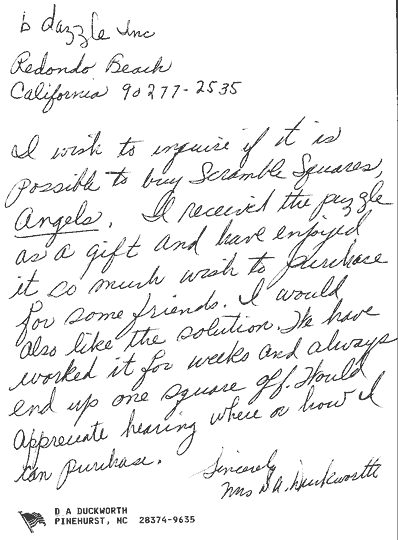 b dazzle Inc
Redondo Beach
California 90277-2535
I wish to inquire if it is
possible to buy Scramble Squares,
Angels. I received the puzzle
as a gift and have enjoyed
it so much wish to purchase
for some friends. I would
also like the solution. We have
worked it for weeks and always
end up one square off. Would
appreciate hearing where or how I
can purchase.
Sincerely
Mrs D A Duckworth
D A DUCKWORTH
PINEHURST, NC 28374-9635